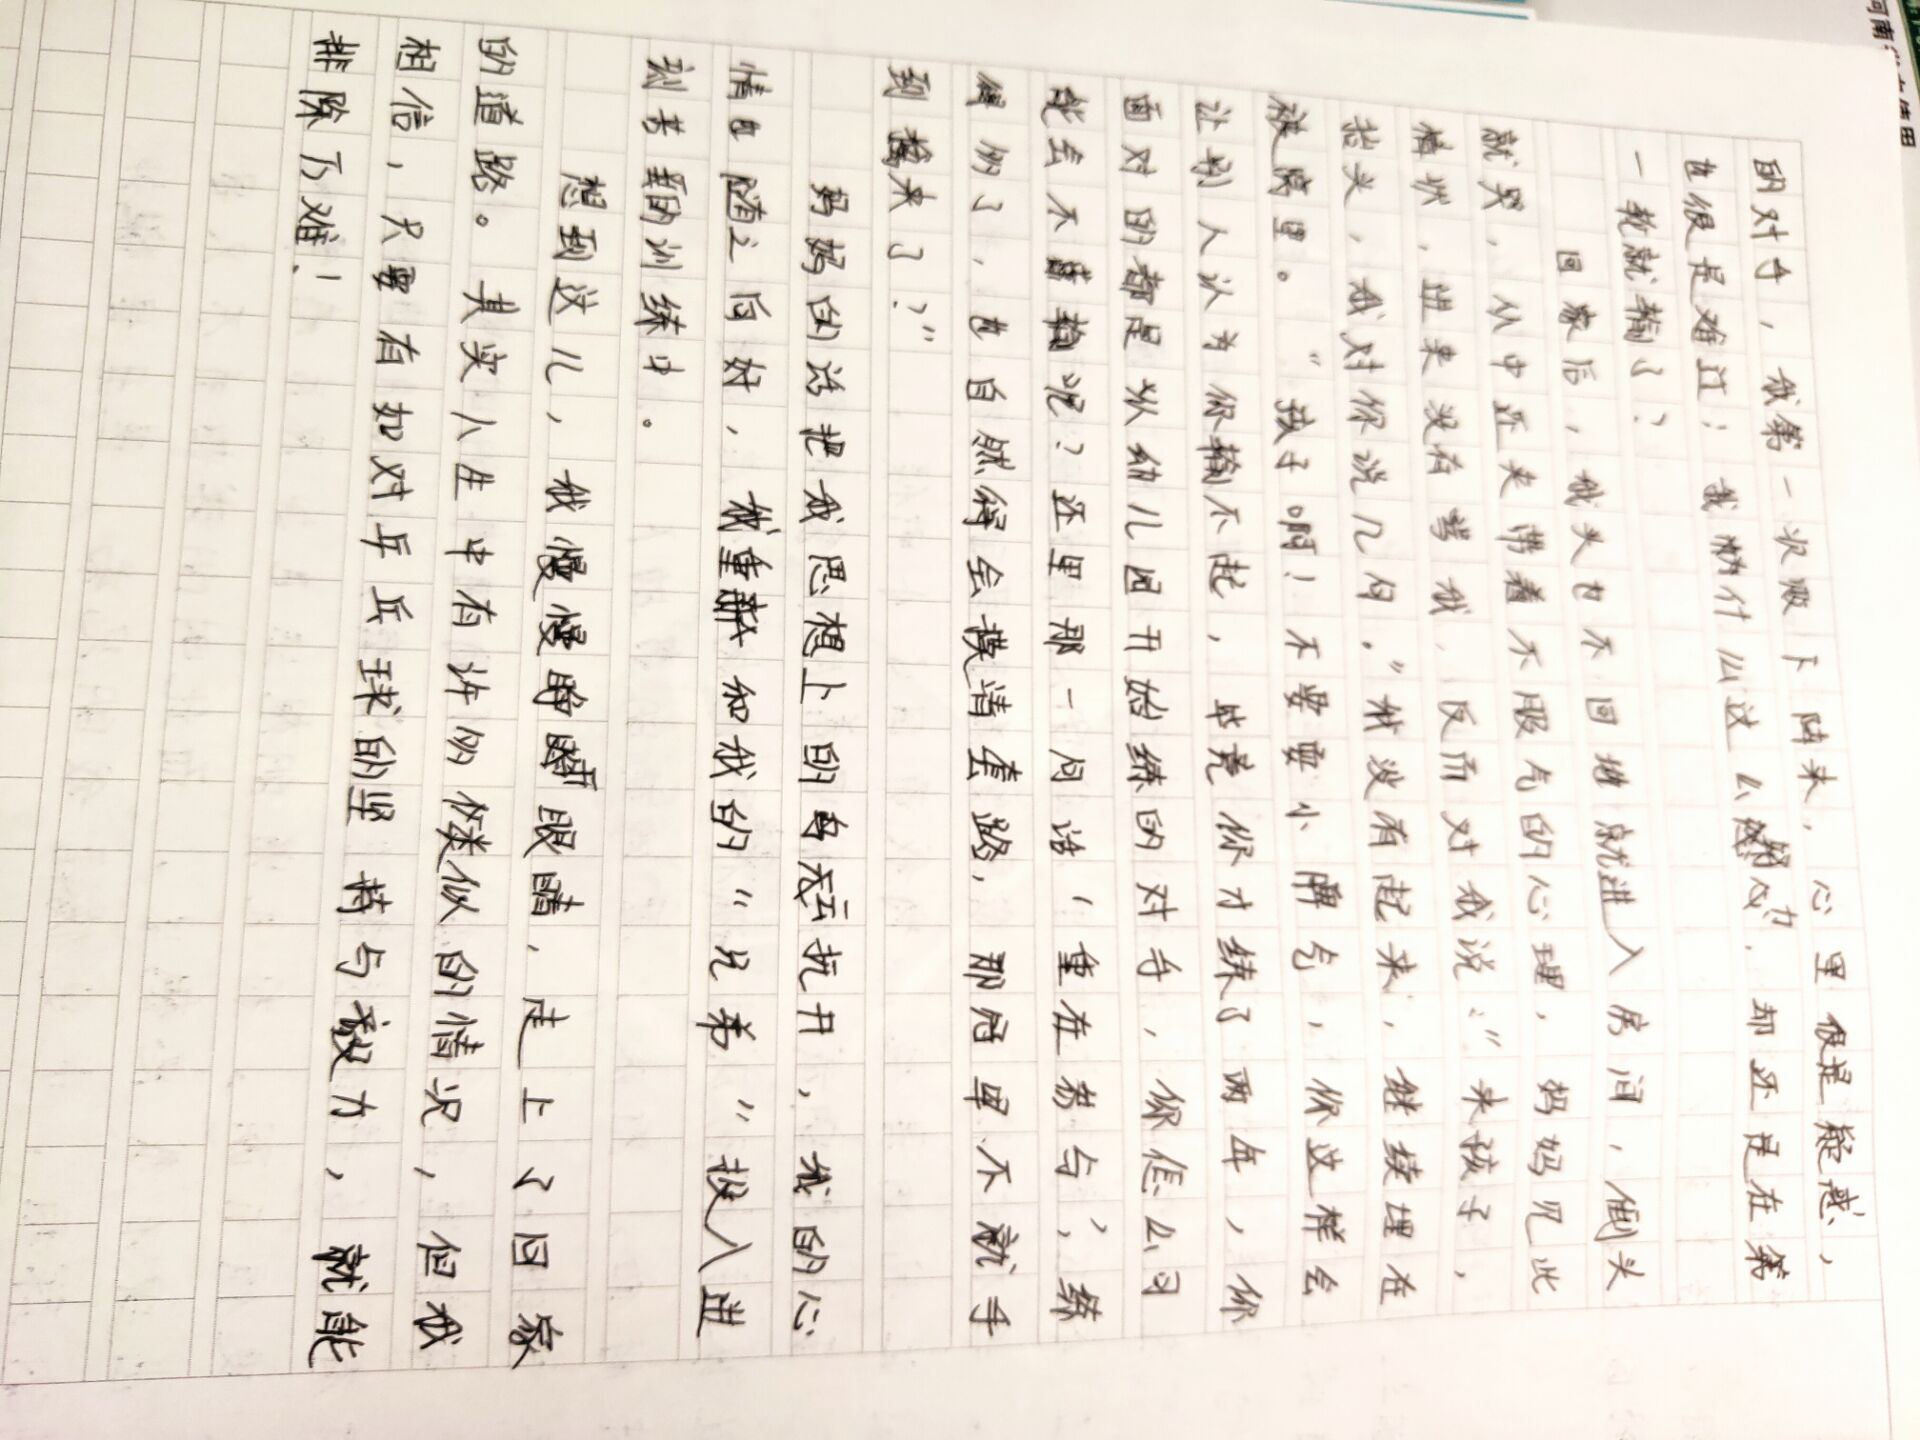 的对手，我第一次败下阵来，心里很是疑惑，
也很是难过；我为什么这么努力，却还是在第
一轮就输了？
回家后，我头也不回地就进入房间，倒头
就哭，从中还夹带着不服气的心理，妈妈见此
模状，进来没有骂我，反而对我说：“来孩子，
抬头，我对你说几句。”我没有起来，继续埋在
被窝里。“孩子啊！不要耍小脾气，你这样会
让别人认为你输不起，毕竟你才练了两年，你
面对的都是从幼儿园开始练的对手，你怎么可
能会不输呢？还里那一句话‘重在参与’，练
得多了，也自然得会摸清套路，那冠军不就手
到擒来了？”
妈妈的话把我思想上的乌云拨开，我的心
情也随之后好，我重新和我的“兄弟”投入进
到苦的训练中。
想到这儿，我慢慢的睁眼睛，走上了回家
的道路。其实人生中有许多类似的情况，但我
相信，只要有如对乒乓球的坚持与毅力，就能
排除万难！